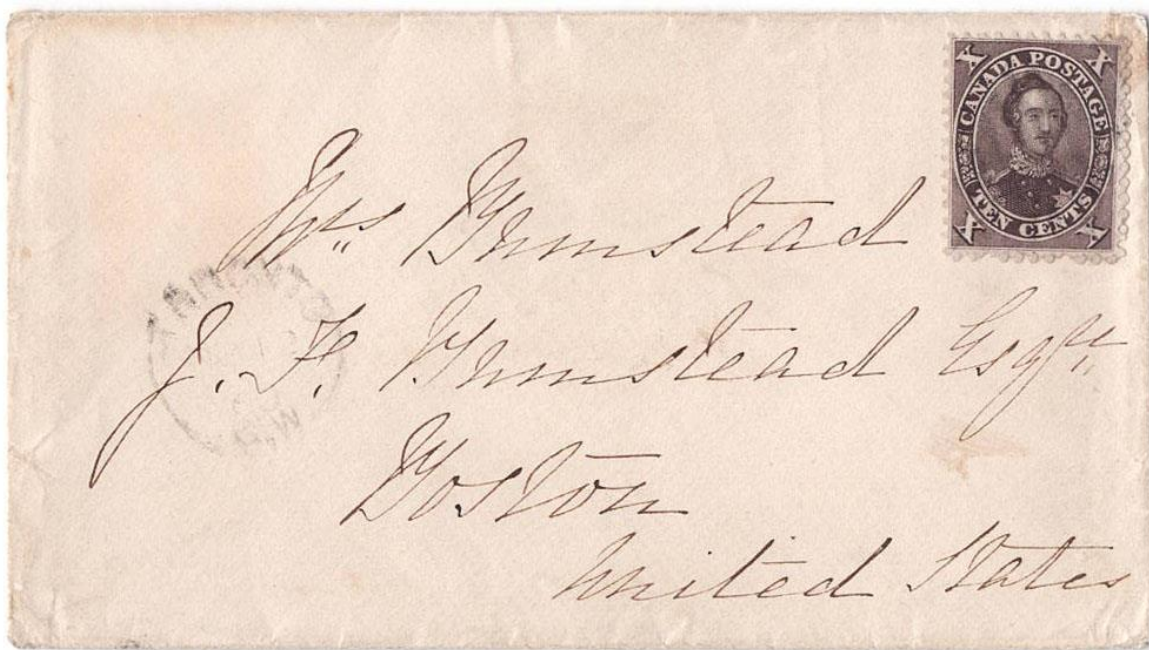 X CANADA POSTAGE X
X TEN CENTS X
Mrs Bumstead
J. F. Bumstead Esqre
Boston
United States
TORONTO
C.W